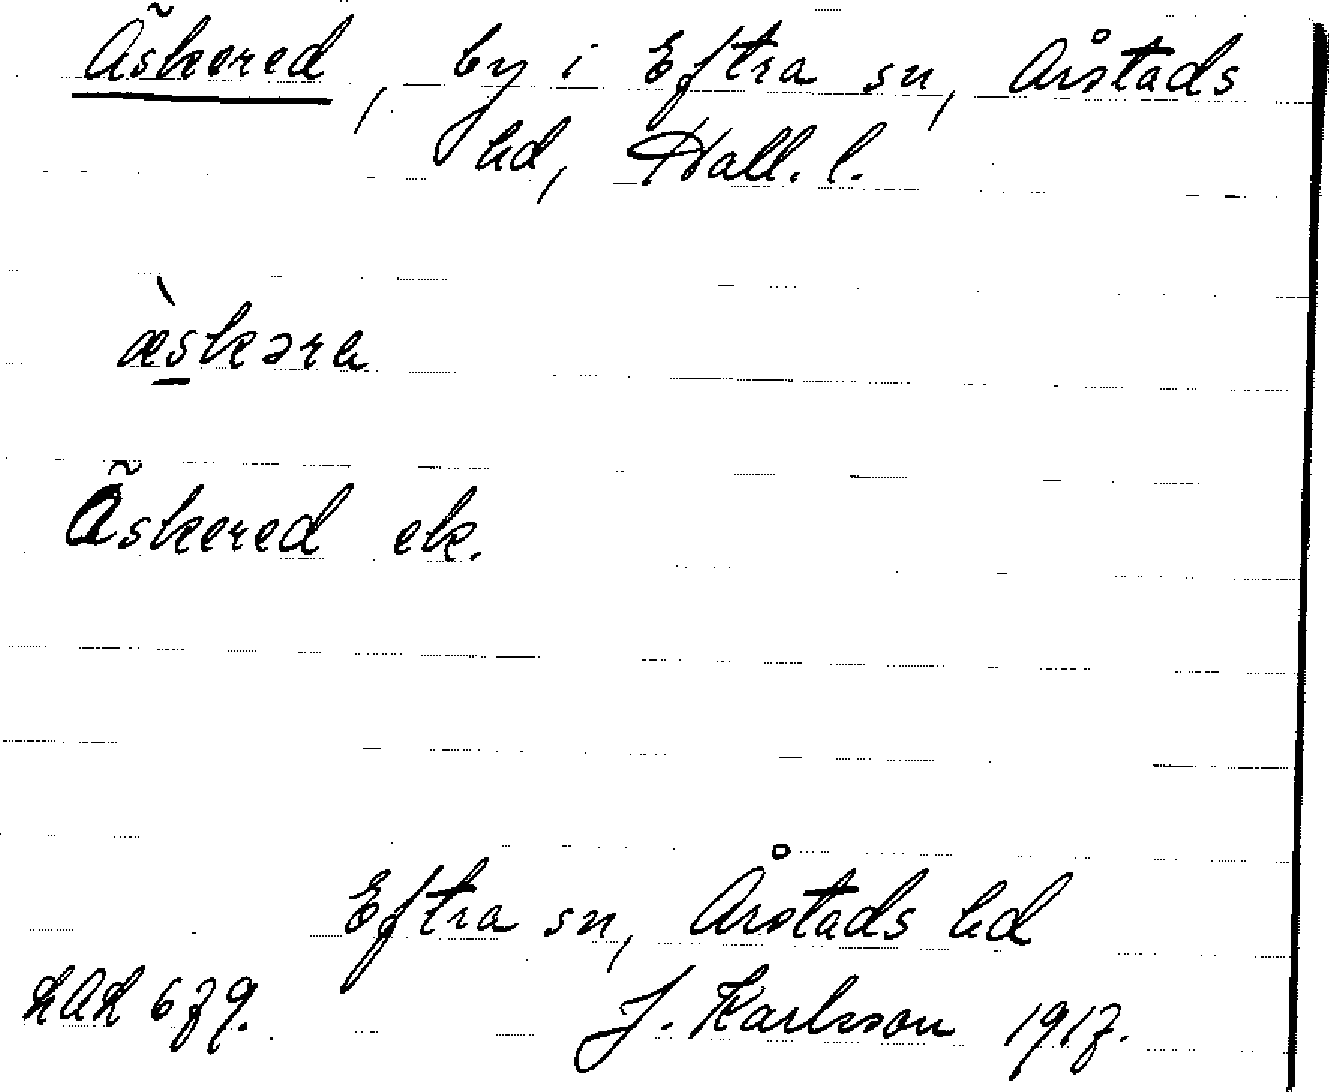 Äskered, by i Eftra sn, Årstads
hd, Hall. l.
æ̀skəra
Äskered ek.
Eftra sn, Årstads hd
LAL 679. J. Karlsson 1917.